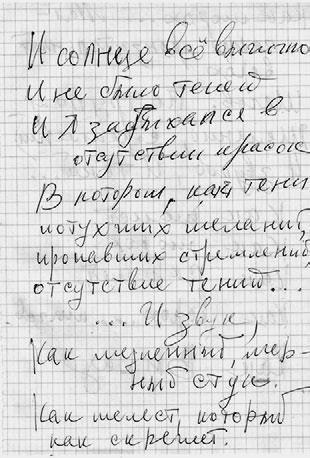 И солнце всё выжгло
И не было теней
И я задыхался в
отсутствии красок
В котором, как тени
потухших желаний,
пропавших стремлений,
отсутствие теней...
... И звук,
Как медленный, мер-
ный стук.
Как шелест, который
как скрежет.